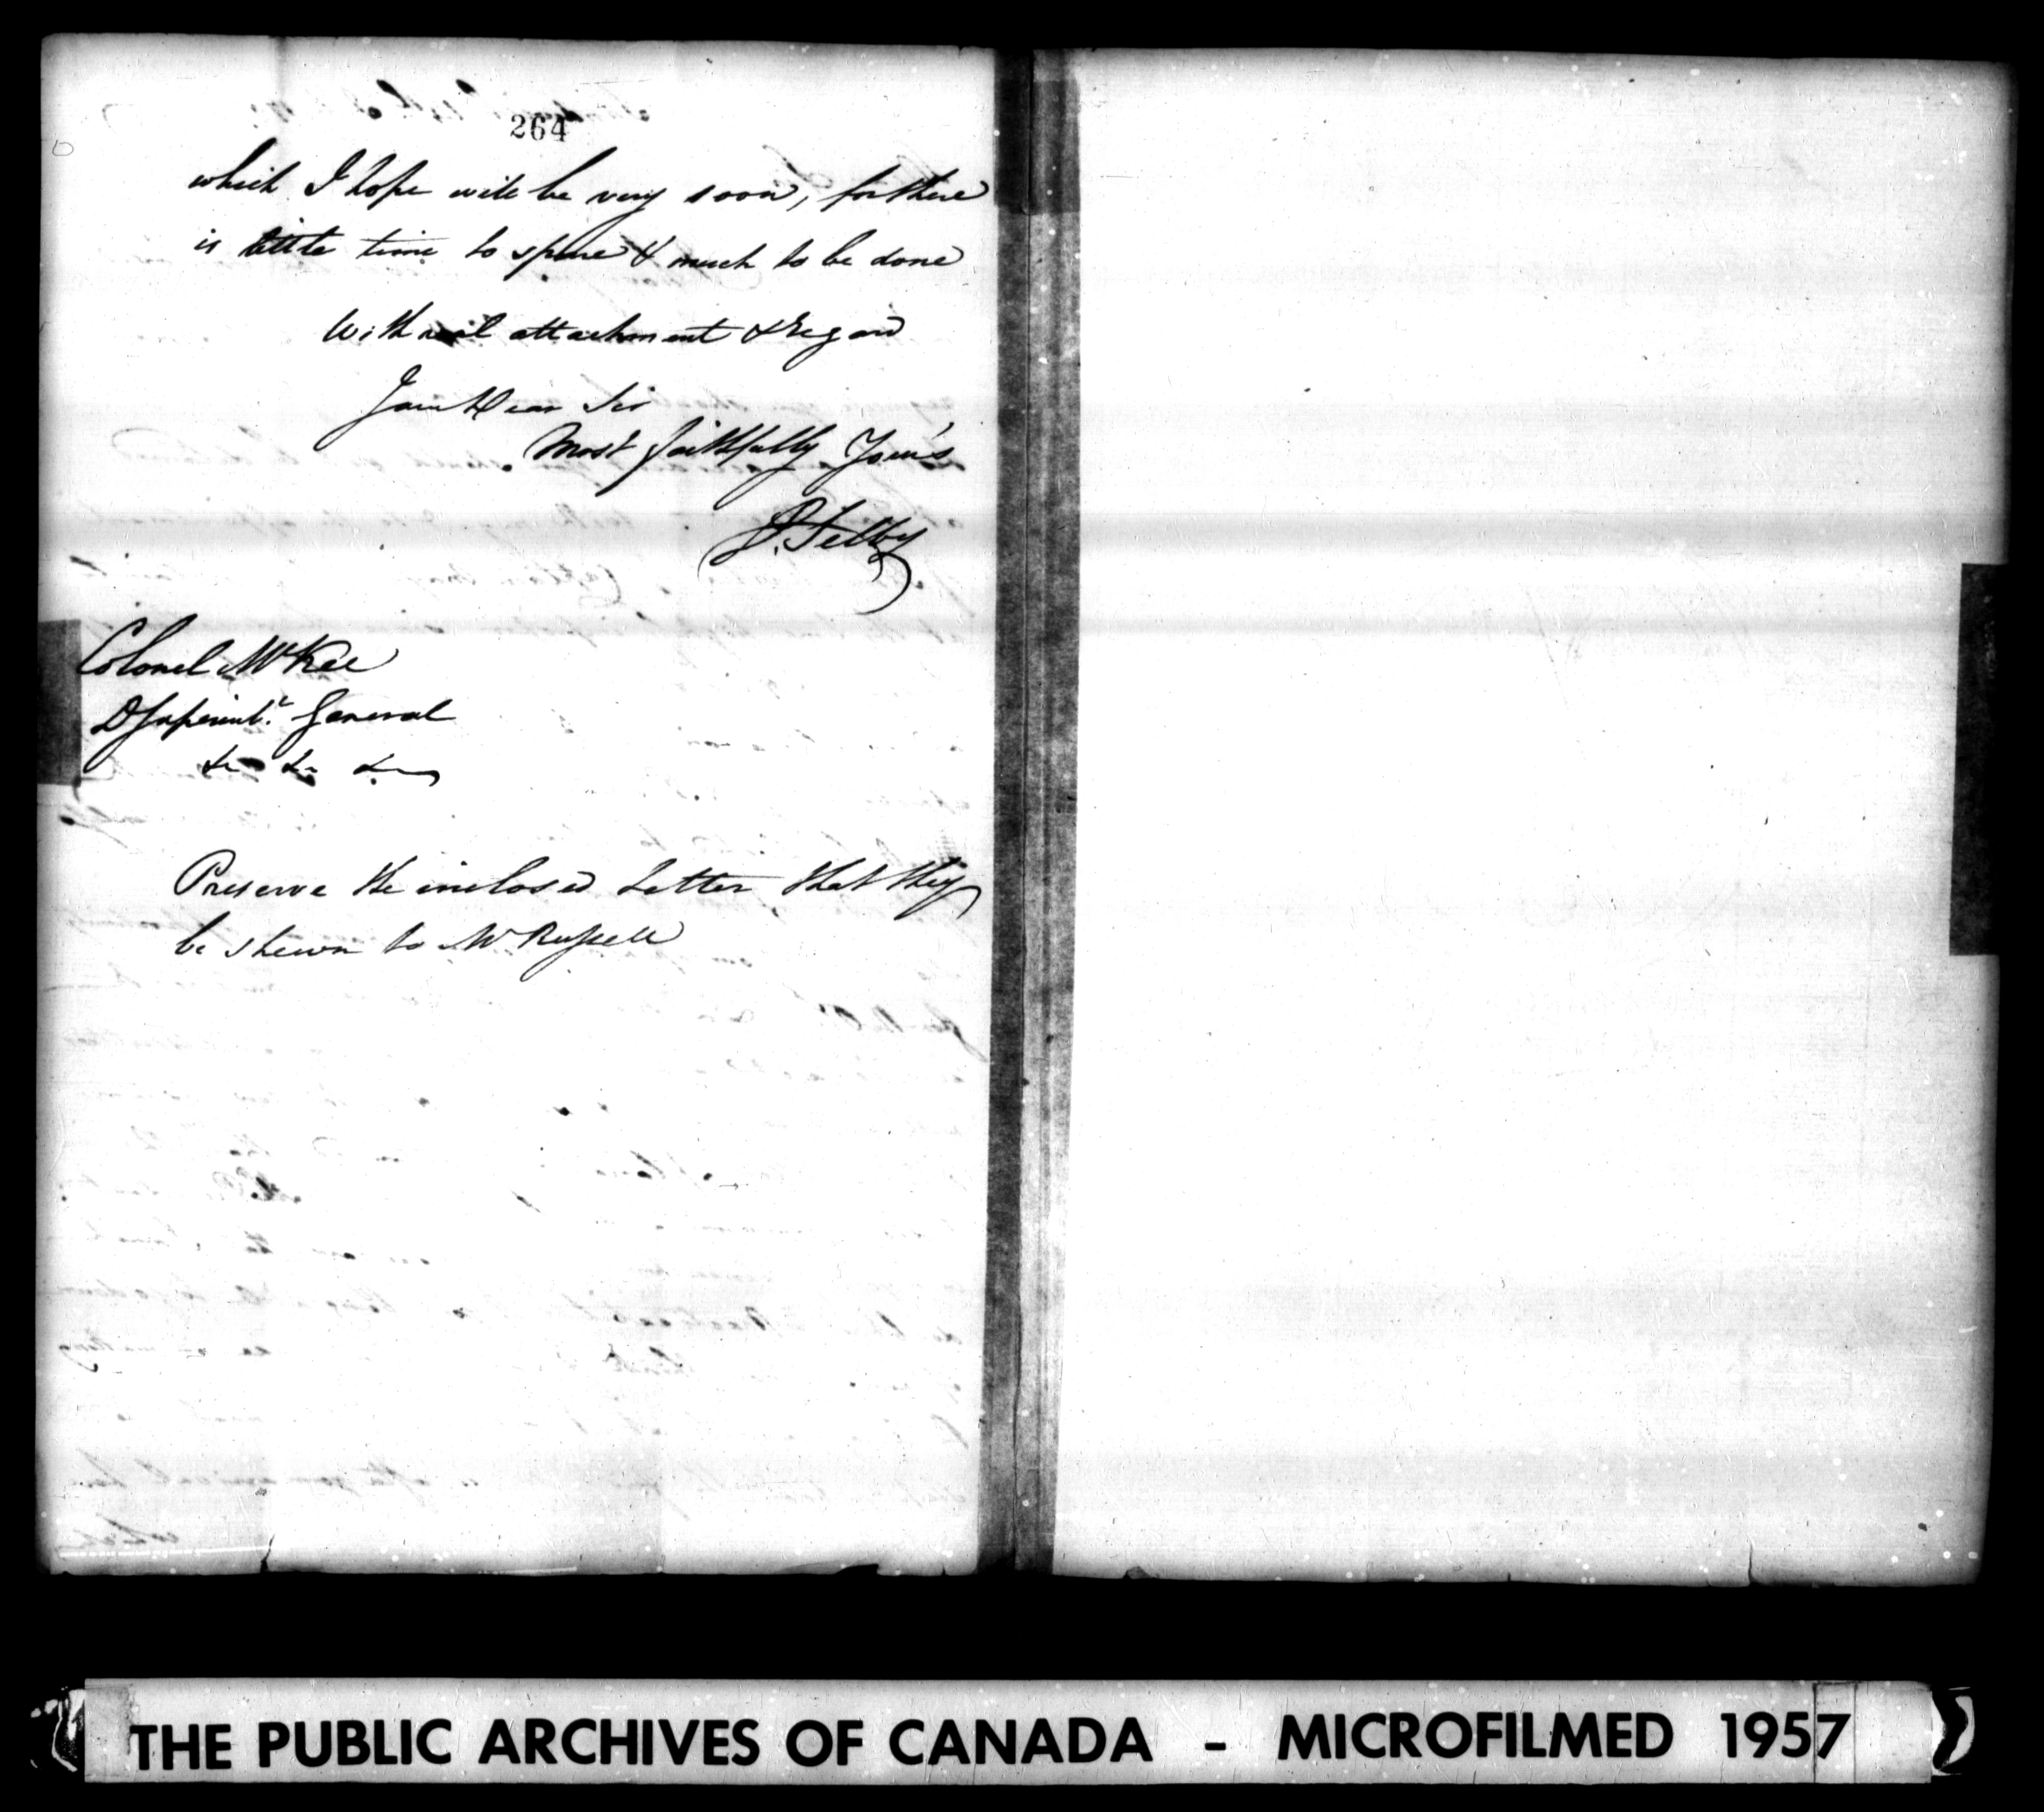 264
which I hope will be very soon, for there
is little time to spare & much to be done
With real attachment & regard
I am Dear Sir
Most faithfully Your's
P. Selby
Colonel McKee
D Superintt. General
&c &c &c
Preserve the inclosed Letter that they
be shewn to Mr Russell
THE PUBLIC ARCHIVES OF CANADA - MICROFILMED 1957